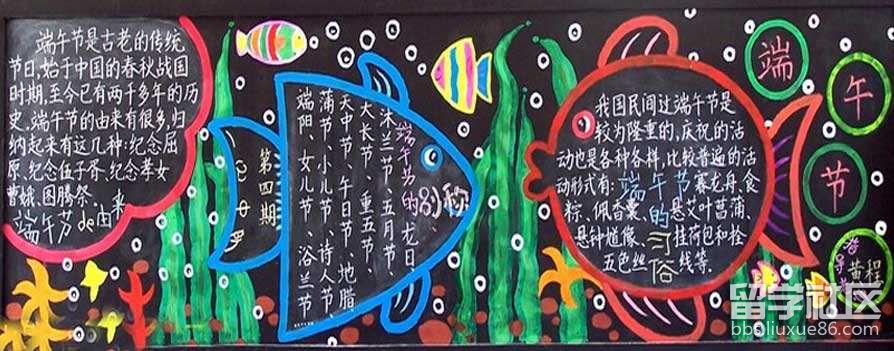 端午节是古老的传统
节日,始于中国的春秋战国
时期,至今已有两千多年的历
史。端午节的由来有很多,归
纳起来有这几种:纪念屈
原、纪念伍子胥、纪念孝女
曹娥、图腾祭。
端午节de由来
第四期
一(2)中队
端午节的别称
龙日、
沐兰节、五月节、
大长节、重五节、
天中节、午日节、地腊
蒲节、小儿节、诗人节、
端阳、女儿节、浴兰节
我国民间过端午节是
较为隆重的,庆祝的活
动也是各种各样,比较普遍的活
动形式有:赛龙舟、食
粽、佩香囊、悬艾叶菖蒲、
悬钟馗像、挂荷包和拴
五色丝线等。
端午节的习俗
端
午
节
黄程
留学社区
bbs.liuxue86.com